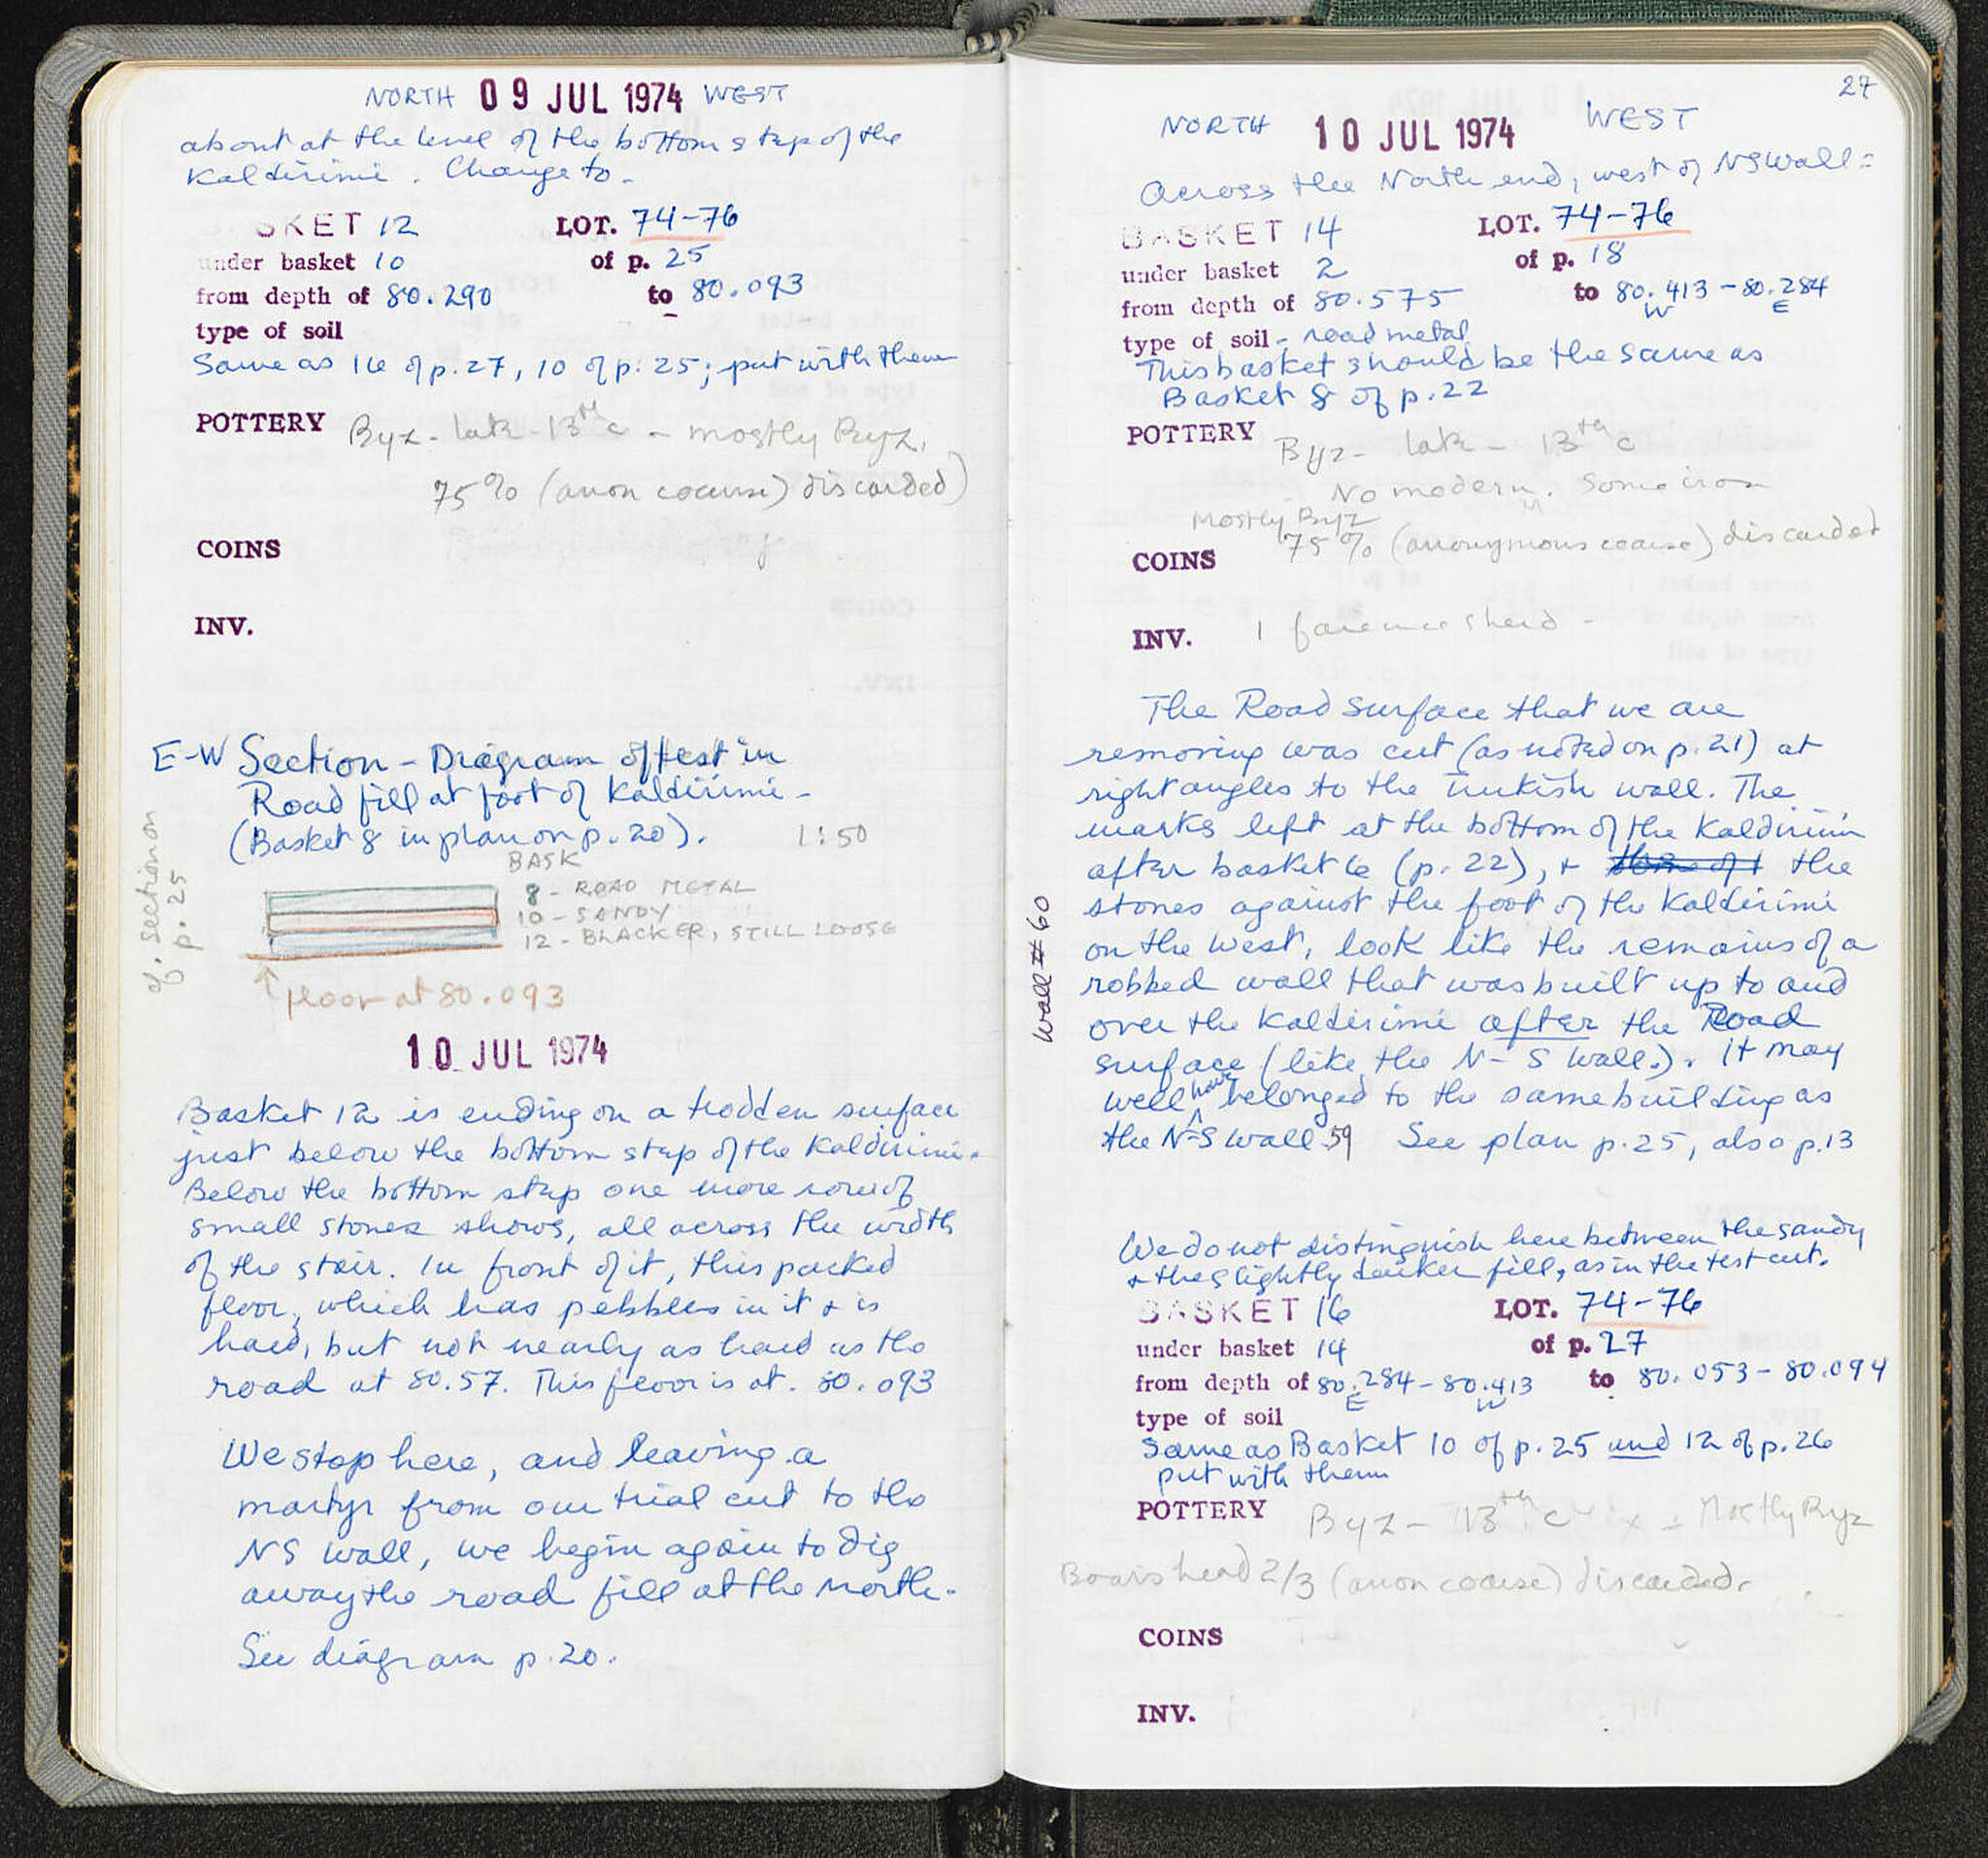 NORTH 09 JUL 1974 WEST
about at the level of the bottom step of the
Kaldirimi. Change to -
SKET 12 LOT. 74-76
under basket 10 of p. 25
from depth of 80.290 to 80.093
type of soil
Same as 16 of p. 27, 10 of p. 25; put with them
POTTERY Byz - late 13th c - mostly Byz.
75% (anon coarse) discarded)
COINS
INV.
E-W Section - Diagram of test in
Road fill at foot of Kaldirimi -
(Basket 8 in plan on p. 20). 1:50
cf. section on
p. 25
BASK
8 - ROAD METAL
10 - SANDY
12 - BLACKER, STILL LOOSE
floor at 80.093
10 JUL 1974
Basket 12 is ending on a trodden surface
just below the bottom step of the Kaldirimi.
Below the bottom step one more row of
small stones shows, all across the width
of the stair. In front of it, this packed
floor, which has pebbles in it + is
hard, but not nearly as hard as the
road at 80.57. This floor is at. 80.093
We stop here, and leaving a
martyr from our trial cut to the
NS wall, we begin again to dig
away the road fill at the north -
See diagram p. 20.
27
NORTH 10 JUL 1974 WEST
Across the North end, west of NS wall =
BASKET 14 LOT. 74-76
under basket 2 of p. 18
from depth of 80.575 to 80.413 - 80.284
W E
type of soil - road metal
This basket should be the same as
Basket 8 of p. 22
POTTERY Byz - late - 13th c
No modern. Some iron
Mostly Byz
75% (anonymous coarse) discarded
COINS
INV. 1 faience sherd -
The Road surface that we are
removing was cut (as noted on p. 21) at
right angles to the Turkish wall. The
marks left at the bottom of the Kaldirimi
after basket 6 (p. 22), + the
stones against the foot of the Kaldirimi
on the west, look like the remains of a
robbed wall that was built up to and
over the Kaldirimi after the Road
surface (like the N-S wall.). It may
well have belonged to the same building as
the N-S wall 59 See plan p. 25, also p. 13
Wall # 60
We do not distinguish here between the sandy
+ the slightly darker fill, as in the test cut.
BASKET 16 LOT. 74-76
under basket 14 of p. 27
from depth of 80.284 - 80.413 to 80.053 - 80.094
E W
type of soil
Same as Basket 10 of p. 25 and 12 of p. 26
put with them
POTTERY Byz - 13th c - Mostly Byz
Boars head 2/3 (anon coarse) discarded.
COINS
INV.